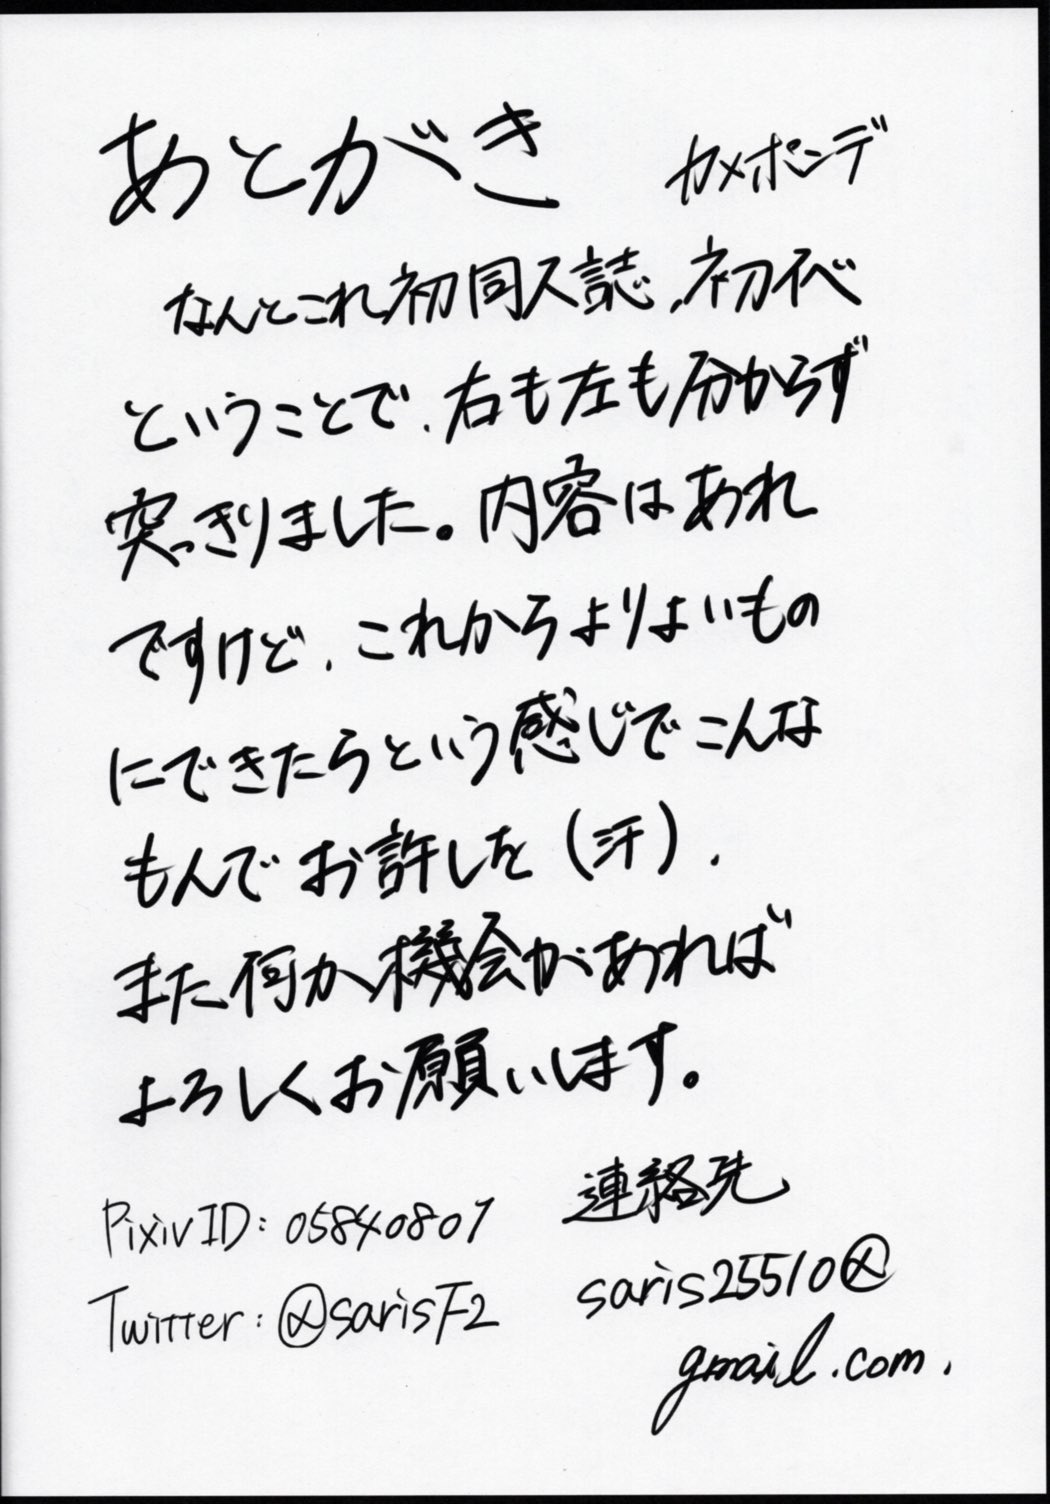 あとがき カメポンデ
なんとこれ初同人誌、初イベ
ということで、右も左も分からず
突っきりました。内容はあれ
ですけど、これからよりよいもの
にできたらという感じでこんな
もんでお許しを(汗)、
また何か機会があれば
よろしくお願いします。
連絡先
PixivID: 05840807
Twitter: @sarisF2
saris25510@
gmail.com.